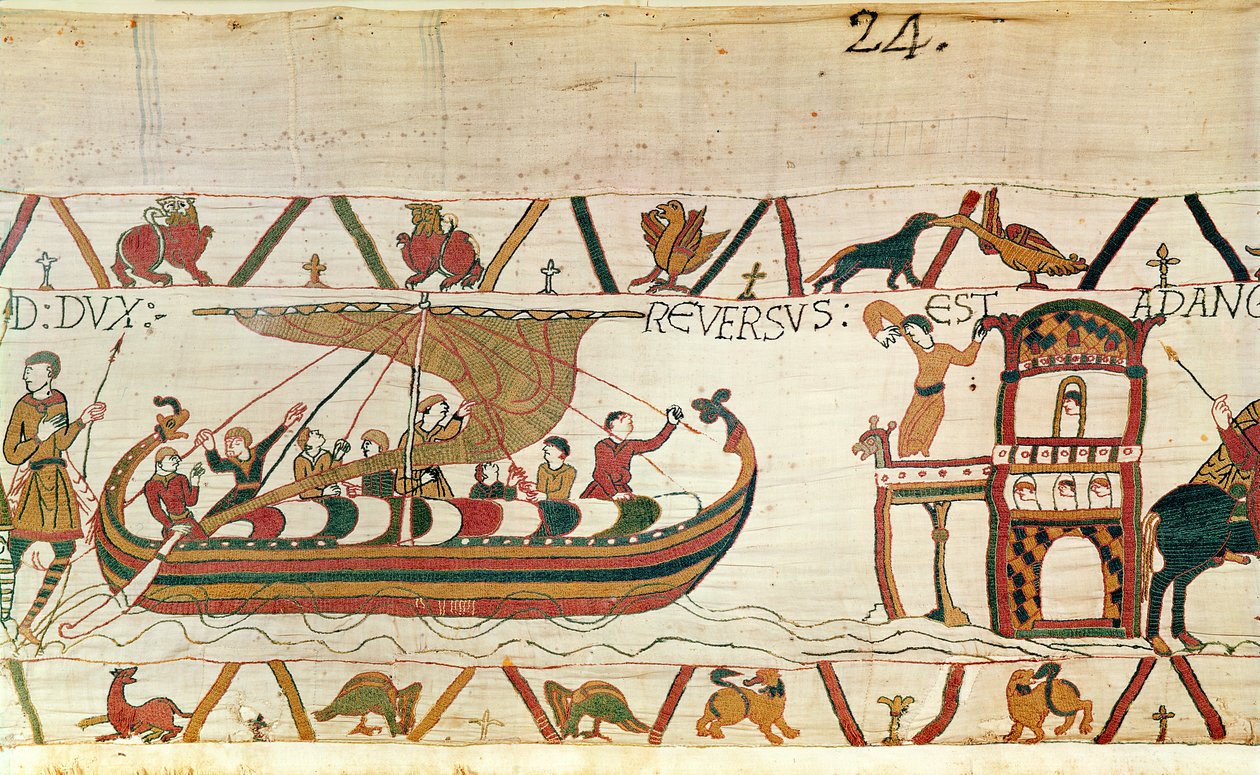 24.
D: DVX:
REVERSVS: EST ADANG